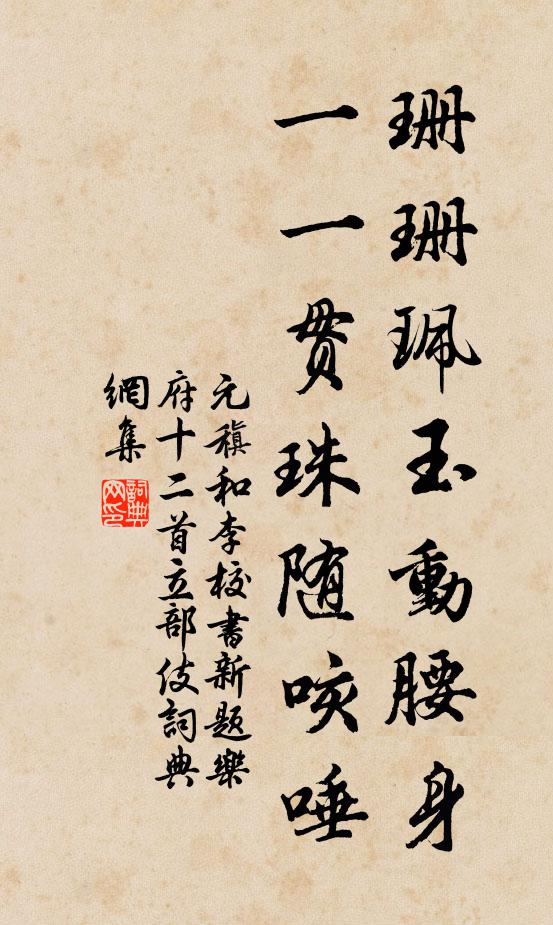 珊珊珮玉動腰身
一一貫珠随咳唾
元稹和李校書新题樂
府十二首立部伎詞典
網集
詞典
网印